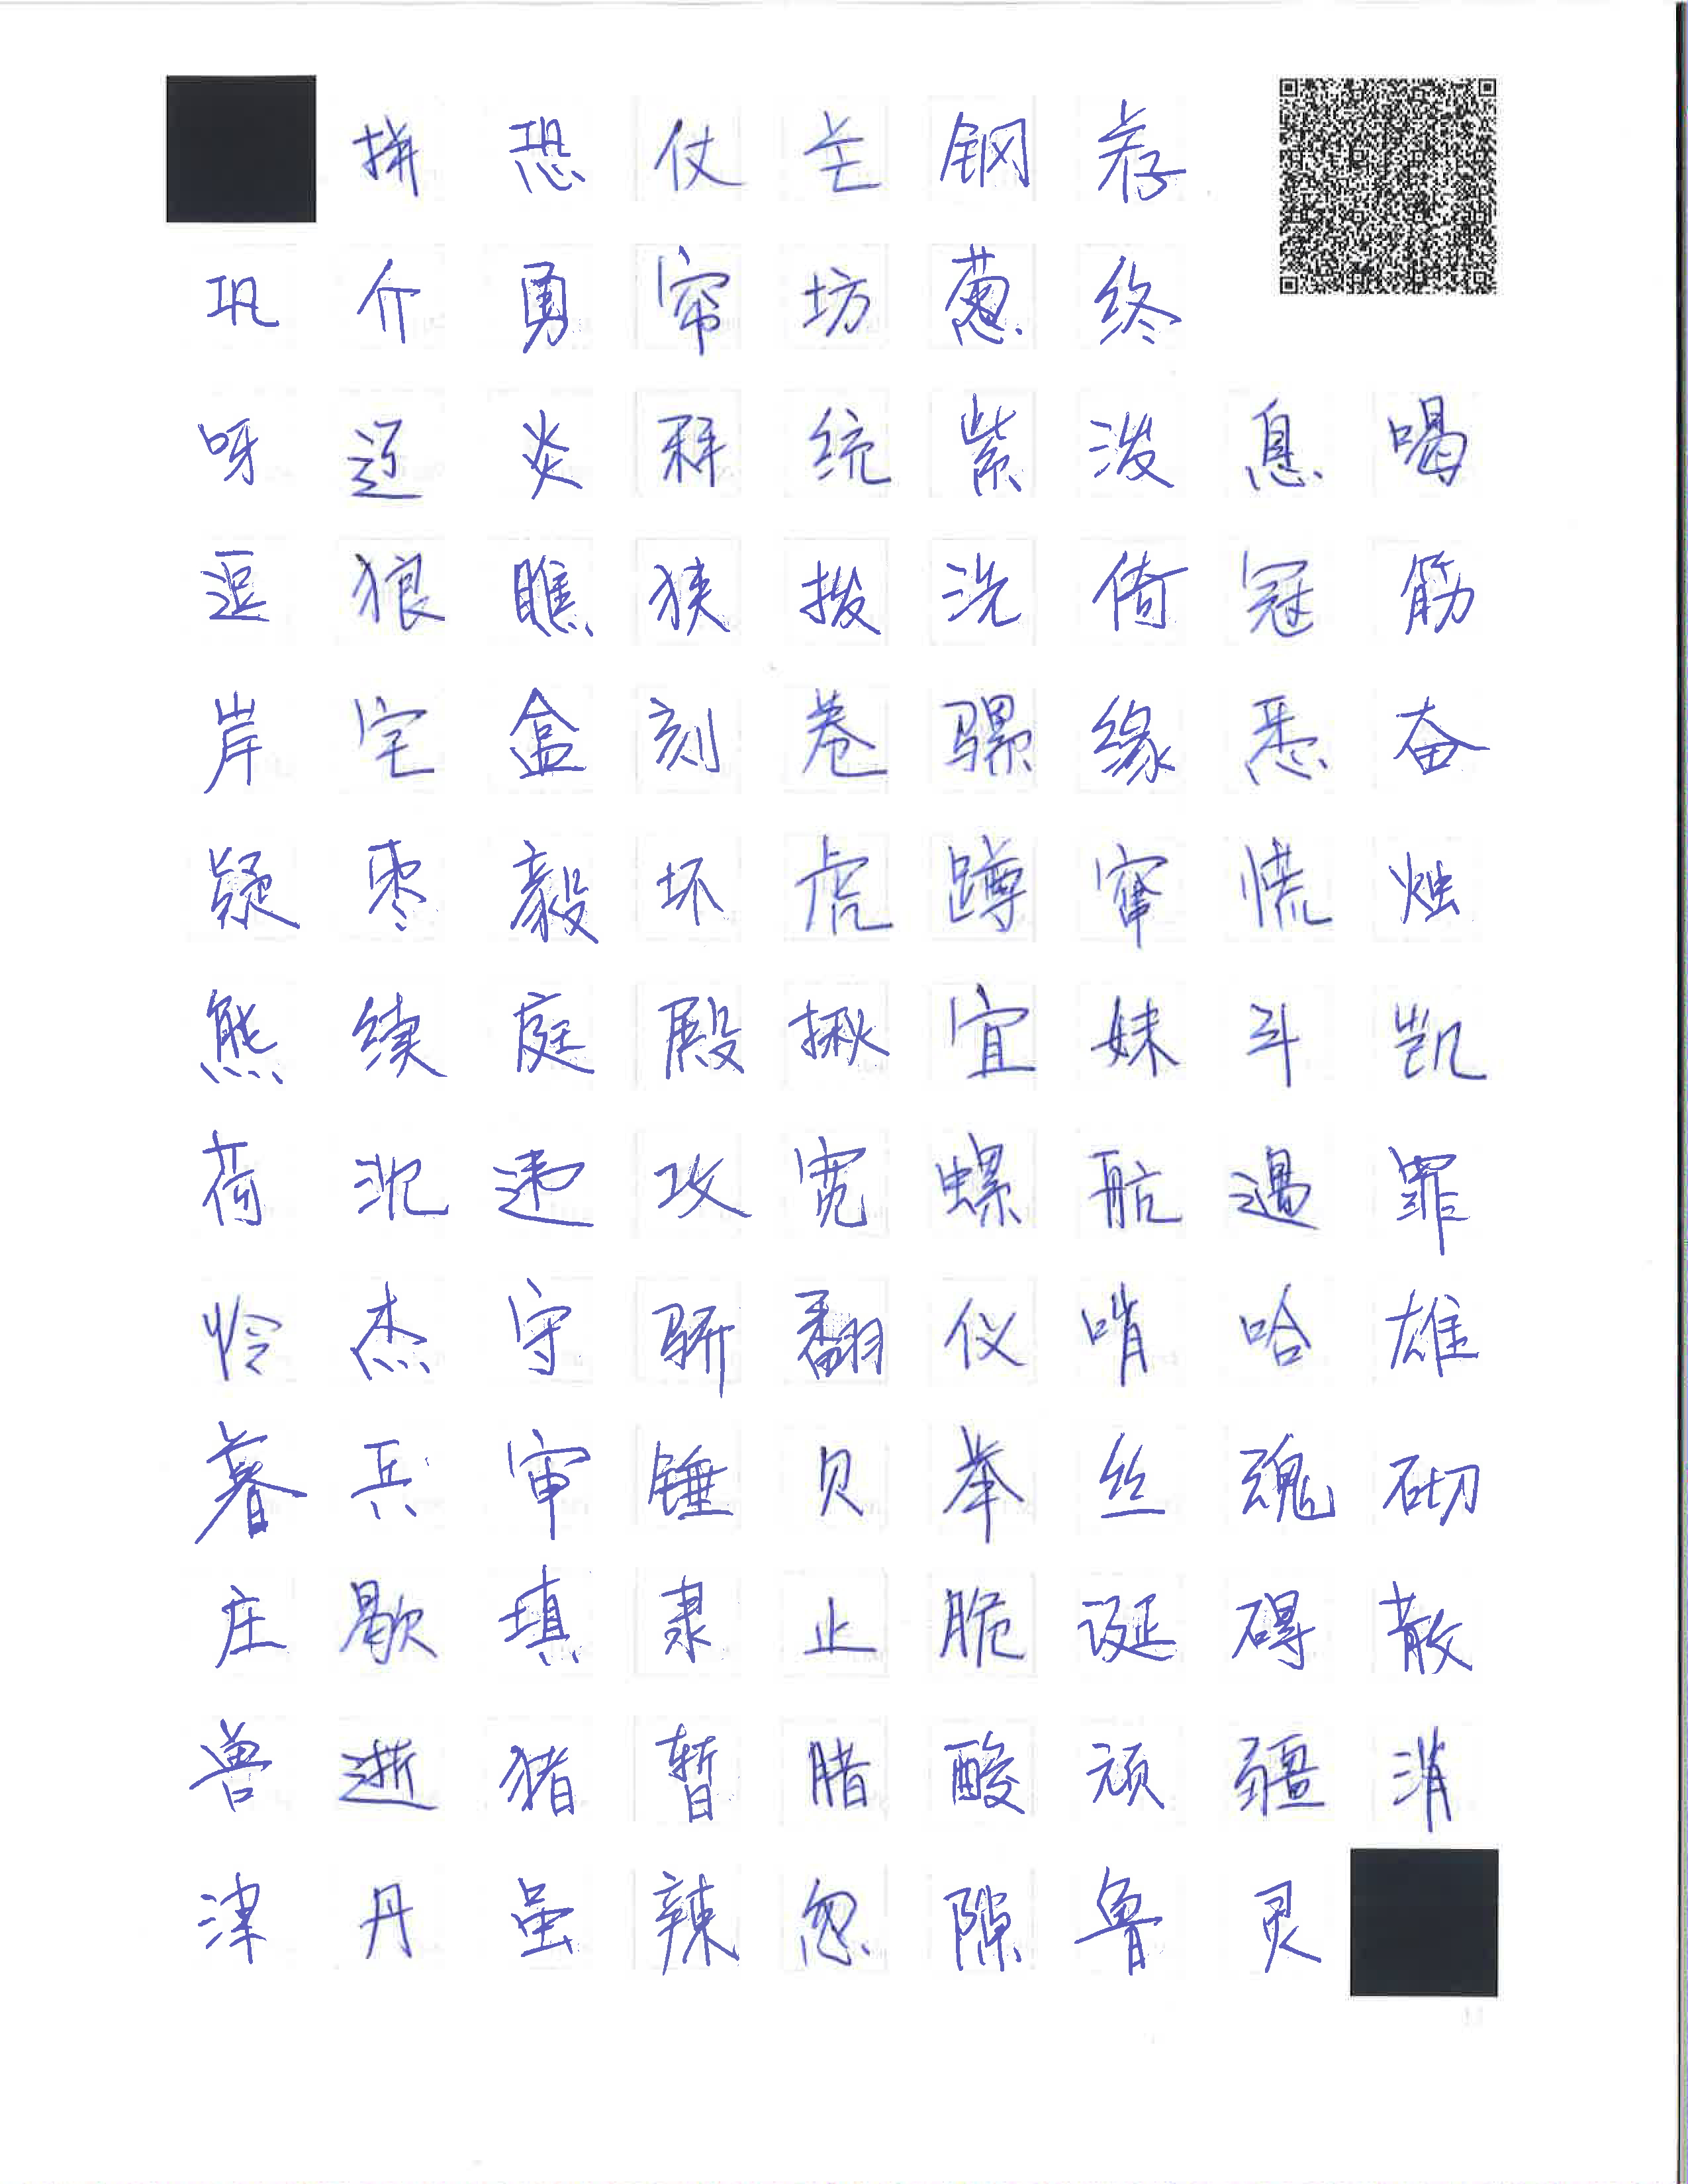 拼恐仗芒钢荐
巩介勇帘坊葱终
呀迈炎群统紫泼息喝
逗狼瞧狭拨洗倚冠筋
岸宅盒刻卷骡缘悉奋
疑枣毅坏虎蹲窜慌烛
熊续庭殿揪宜妹斗凯
荷沉违攻宽螺航遏罪
怜杰守骄翻仪哨哈雄
暮兵审锤贝举丝魂砌
庄歇填隶止脆诞碍散
兽逝猪暂腊酸顽疆消
津丹虽辣忽隙鲁灵